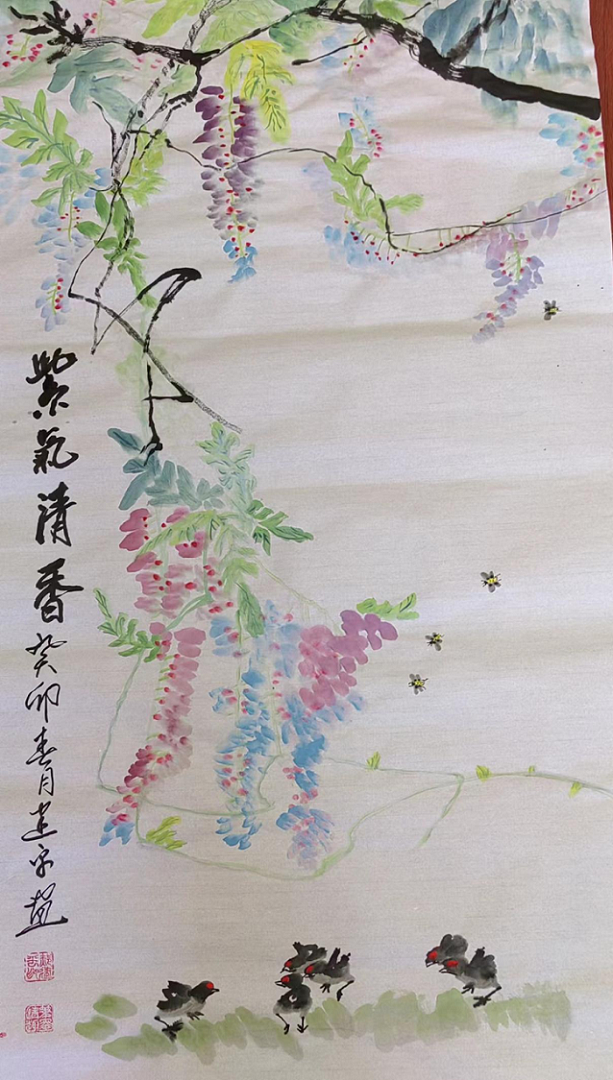 紫氣清香
癸卯春月建平画